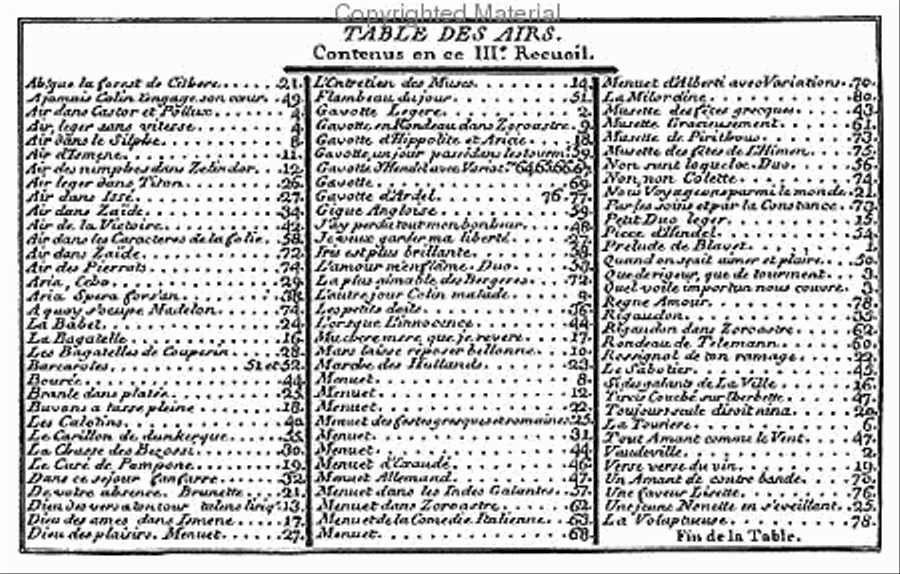 Copyrighted Material
TABLE DES AIRS.
Contenus en ce IIIe. Recueil.
Abſque la forest de Citbere 21.
Ajamais Colin s'engage son cœur 49.
Air dans Castor et Pollux
Air leger sans vitesse
Air dans le Silphe 8.
Air d'Ismene 11.
Air des nimphes dans Zelindor 12.
Air leger dans Titon 26.
Air dans Issé 27.
Air dans Zaïde 34.
Air de la Victoire 42.
Air dans les Caracteres de la folie 58.
Air dans Zaïde 72.
Air des Pierrots 74.
Aria, Cebo 29.
Aria Spera fors'an 38.
A quoy s'ocupe Madelon 74.
La Babet 24.
La Bagatelle 16.
Les Bagatelles de Couperin 28.
Barcaroles 51 et 52.
Bourée 44.
Branle dans platée 25.
Buvons a tasse pleine 18.
Les Calotins 40.
Le Carillon de dunkerque 55.
La Chasse des Bezossi 30.
Le Curé de Pompone 19.
Dans ce sejour fanfarre 32.
De votre absence. Brunette 21.
Dieu des vers a ton tour 13.
Dieu des ames dans Ismene 17.
Dieu des plaisirs. Menuet 27.
L'Entretien des Muses 14.
Flambeau du jour 51.
Gavotte Legere 2.
Gavotte en Rondeau dans Zoroastre 9.
Gavotte d'Hippolite et Aricie 18.
Gavotte, un jour passé dans les tourm. 59.
Gavotte d'Hendel avec Variat.
Gavotte 69.
Gavotte d'Ardel 76. 77.
Gigue Angloise 59.
J'ay perdu tout mon bonheur 48.
Je veux garder ma liberté 27.
Iris est plus brillante 38.
L'amour m'enflâme. Duo 53.
La plus aimable des Bergeres 72.
L'autre jour Colin malade 9.
Les petits doits 36.
Lorsque L'innocence 44.
Ma chere mere que je revere 17.
Mars laisse reposer bellonne 10.
Marche des Hullands 23.
Menuet 8.
Menuet 12.
Menuet 22.
Menuet des festes grecques et romaines 25.
Menuet 31.
Menuet 44.
Menuet d'Exaudé 46.
Menuet Allemand 47.
Menuet dans les Indes Galantes 57.
Menuet dans Zoroastre 62.
Menuet de la Comedie Italienne 63.
Menuet 68.
Menuet d'Alberti avec Variations 70.
La Milordine 80.
Musette des fêtes grecques 43.
Musette Gracieusement 61.
Musette de Pirithous 73.
Musette des fêtes de L'Himen 75.
Non sunt loqueloe. Duo 56.
Non, non Colette 74.
Nous Voyageons parmi le monde 21.
Par les soins et par la Constance 79.
Petit Duo leger 15.
Piece d'Hendel 54.
Prelude de Blavet 1.
Quand on sçait aimer et plaire 50.
Que de rigeur, que de tourment 3.
Quel voile importun nous couvre 3.
Regne Amour 78.
Rigaudon 33.
Rigaudon dans Zoroastre 62.
Rondeau de Telemann 60.
Rossignol de ton ramage 22.
Le Sabotier 45.
Si des galants de La Ville 16.
Tircis Couché sur l'herbette 47.
Toujours seule disoit nina 20.
La Touriere 6.
Tout Amant comme le Vent 47.
Vaudeville 2.
Verse verse du vin 19.
Un Amant de contre bande 70.
Une faveur Lisette 76.
Une jeune Nonette en s'éveillant 25.
La Voluptueuse 78.
Fin de la Table.